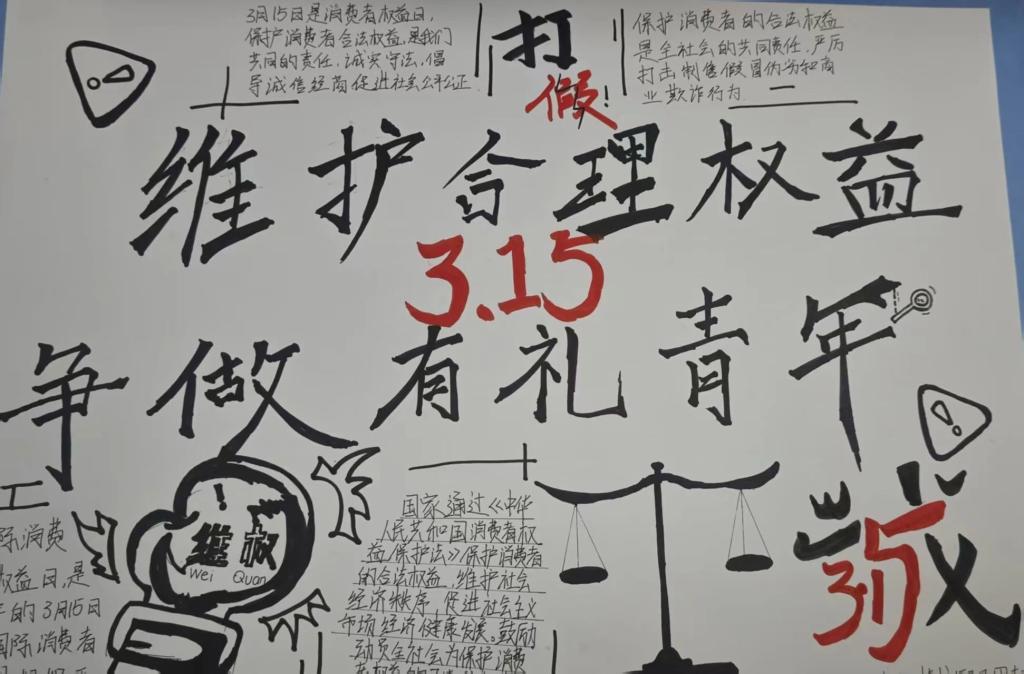 3月15日是消费者权益日,
保护消费者合法权益,是我们
共同的责任,诚实守法,倡
导诚信经商促进社会公平公正.
打
假!
保护消费者的合法权益
是全社会的共同责任,严厉
打击制售假冒伪劣和商
业欺诈行为
维护合理权益
3.15
争做有礼青年
维权
Wei Quan
际消费
权益日,是
的3月15日
国际消费者
国家通过《中华
人民共和国消费者权
益保护法》保护消费者
的合法权益,维护社会
经济秩序,促进社会主义
市场经济健康发展。鼓励
动员全社会为保护消费
315